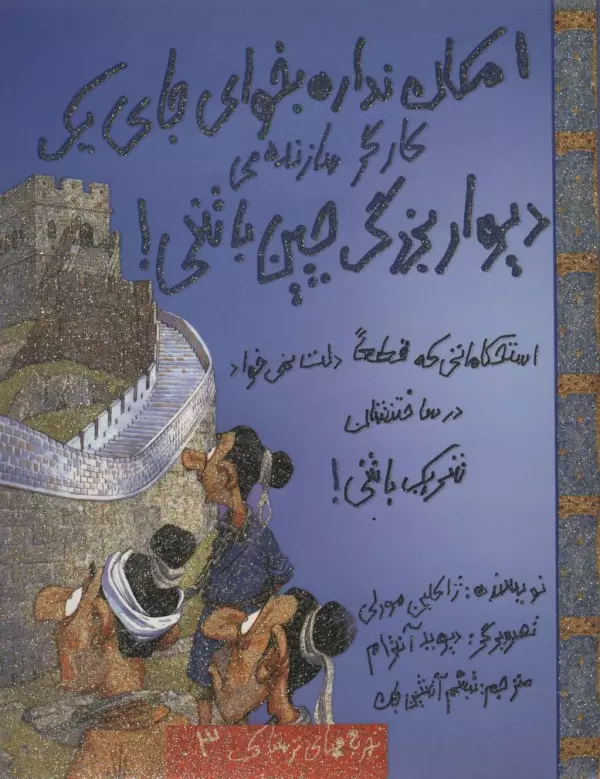 امکان نداره بخوای جای یک
کارگر سازنده‌ی
دیوار بزرگ چین باشی!
استحکاماتی که قطعاً دلت نمی‌خواد
در ساختنشان
شریک باشی!
نویسنده: ژاکلین مورلی
تصویرگر: دیوید آنترام
مترجم: تبسم آتشین جان
برج‌های ترسناک ۳